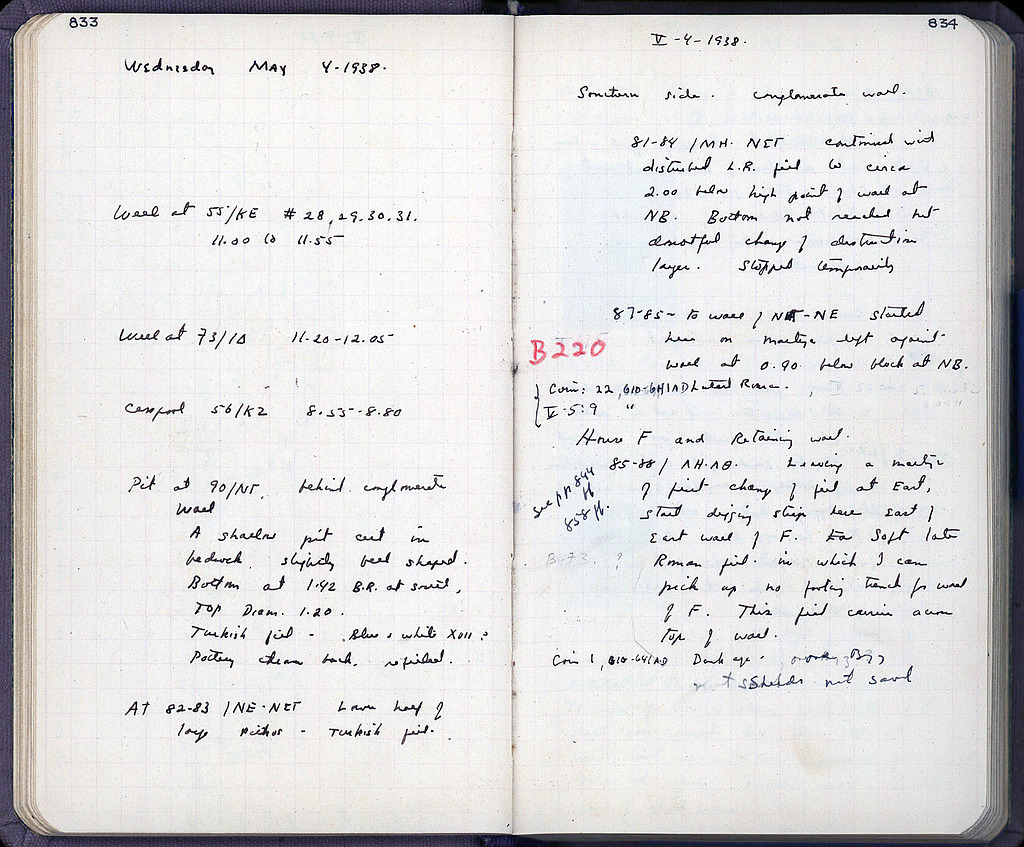 833
Wednesday May 4-1938.
Well at 55/KE # 28, 29. 30. 31.
11.00 to 11.55
Well at 73/10 11.20-12.05
Cesspool 56/K2 8.55-8.80
Pit at 90/NT, behind conglomerate
wall
A shallow pit cut in
bedrock slightly bell shaped.
Bottom at 1.42 B.R. at south,
Top Diam. 1.20.
Turkish fill - Blue & white XIII ?
Pottery thrown back. refilled.
At 82-83 /NE-NET Lower half of
large Pithos - Turkish fill.
834
V-4-1938.
Southern side. Conglomerate wall.
81-84 /MH-NET continued with
disturbed L.R. fill to circa
2.00 below high point of wall at
NB. Bottom not reached but
doubtful change of destruction
layer. Stopped temporarily
87-85- to wall / -NE started
here on left against
wall at 0.90 below block at NB.
B220
Coin: 22, 610-641AD Late Roman.
V-5: 9 "
House F and Retaining wall.
85-88 / AH-AB. Leaving a
of first change of fill at East,
start digging strip here East of
East wall of F. Soft late
Roman fill in which I can
pick up no footing trench for wall
of F. This fill carries across
top of wall.
see pp 844 ff
858 ff.
B-73. ?
Coin 1, 610-641AD Dark age -
sherds not saved